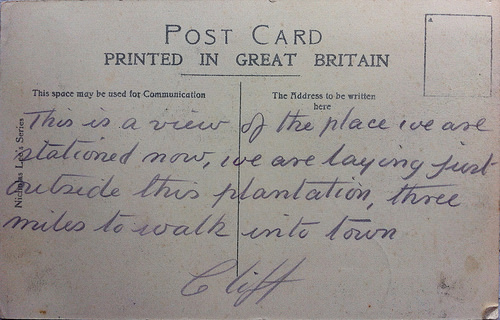 POST CARD
PRINTED IN GREAT BRITAIN
This space may be used for Communication
The Address to be written
here
This is a view of the place we are
stationed now, we are laying just
outside this plantation, three
miles to walk into town
Cliff
Nicholas Series